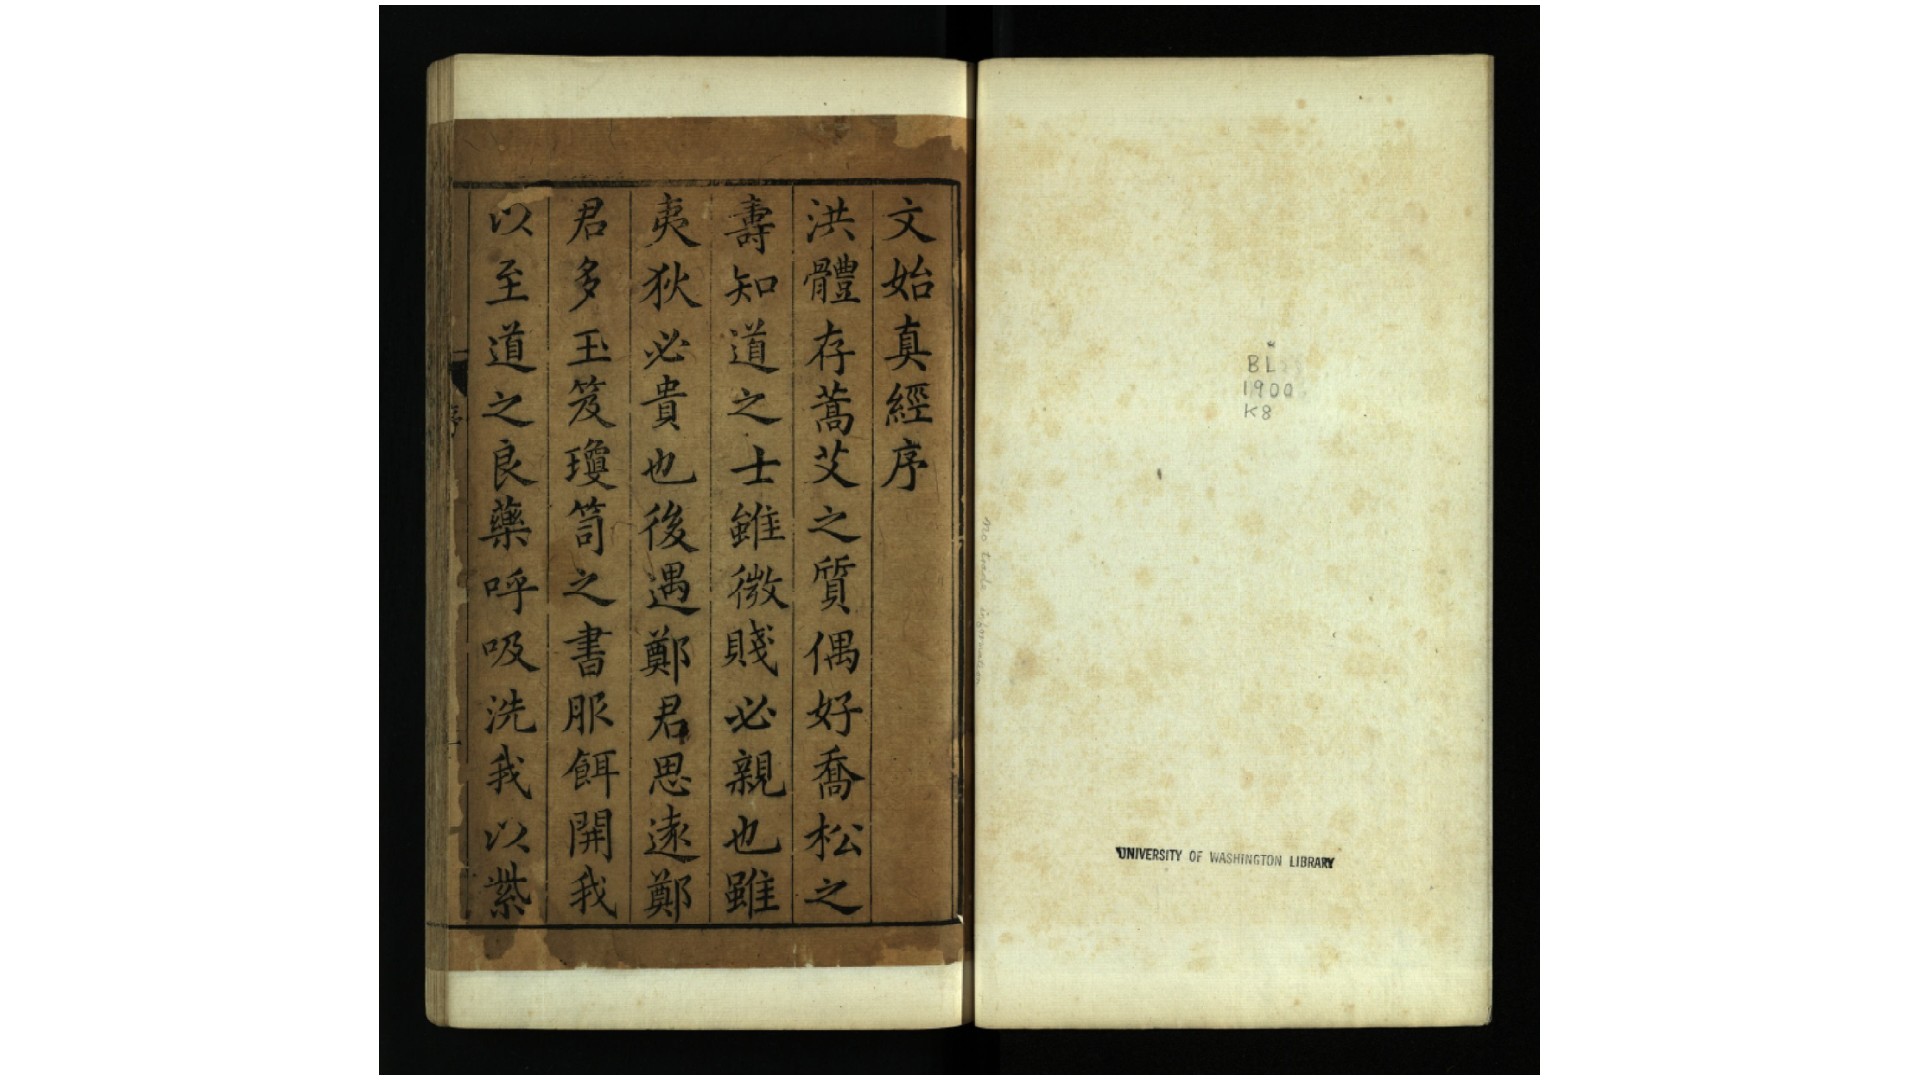 BL
1900
K8
UNIVERSITY OF WASHINGTON LIBRARY
no trade information
文始真經序
洪體存蒿艾之質偶好喬松之
壽知道之士雖微賤必親也雖
夷狄必貴也後遇鄭君思遠鄭
君多玉笈瓊笥之書服餌開我
以至道之良藥呼吸洗我以紫
序